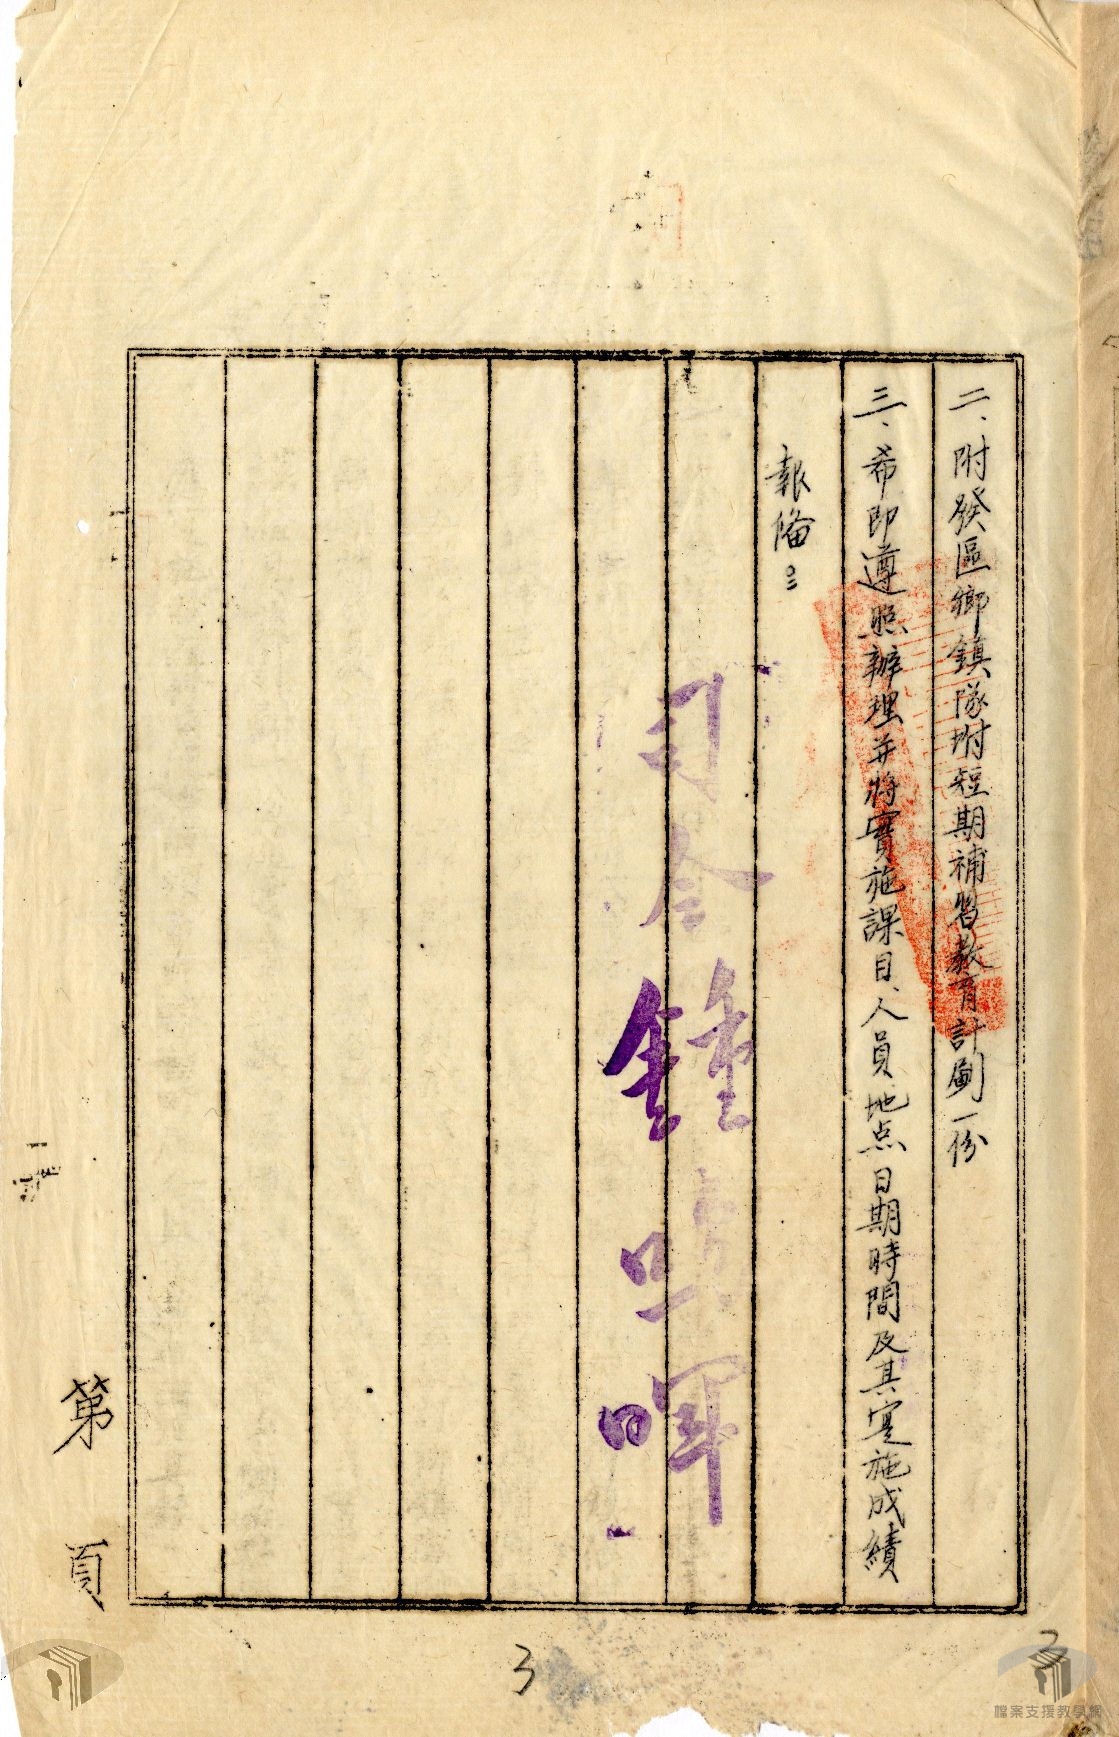 二、附發區鄉鎮隊坿短期補習教育計劃一份
三、希即遵照辦理并將實施課目、人員、地点日期時間及其寔施成績
報俻
司令鍾
第 頁
3
3
檔案支援教學網